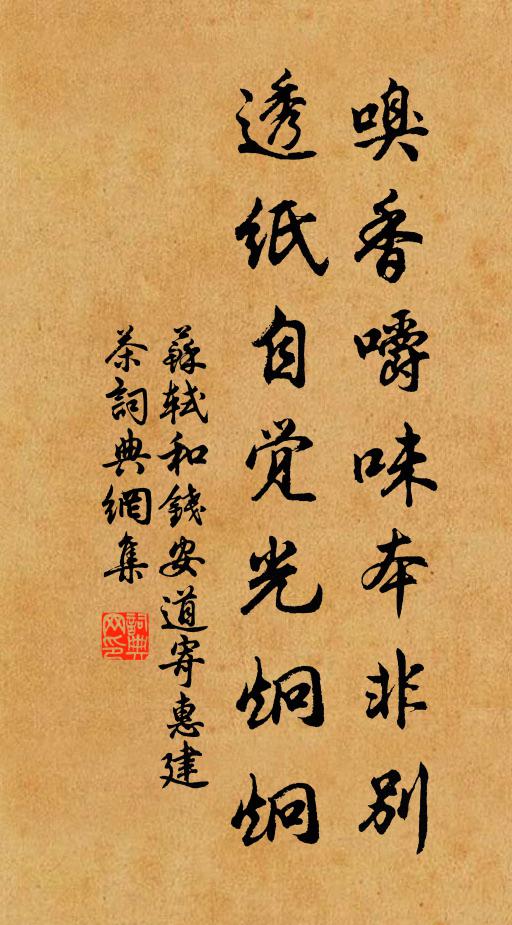 嗅香嚼味本非别
透纸自觉光炯炯
蘇軾和錢安道寄惠建
茶詞典網集
詞典网印